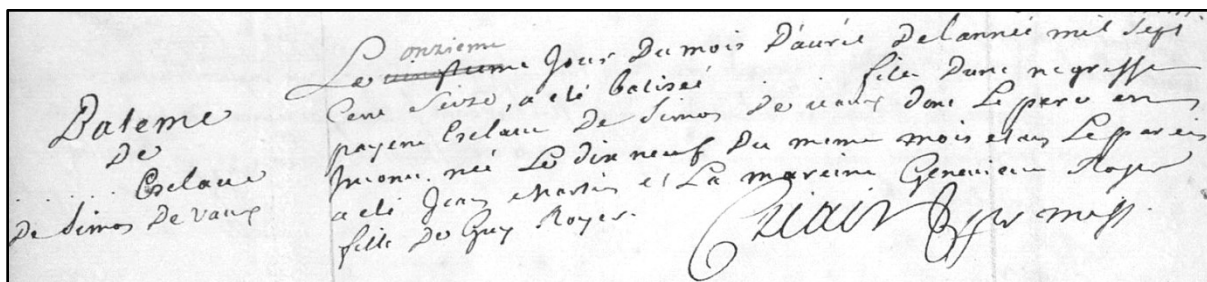 Bateme
De
Esclave
De Simon De vaux
onzieme
Le Jour Du mois D'avril De lannée mil Sept
Cent Seize, a eté batisée fille Dune negresse
payene Esclave De Simon De vaux Dont Le pere en
Inconu. née Le Dix neuf Du meme mois et an Le parein
a eté Jean Martin et La mareine Genevieve Royer
fille De Guy Royer.